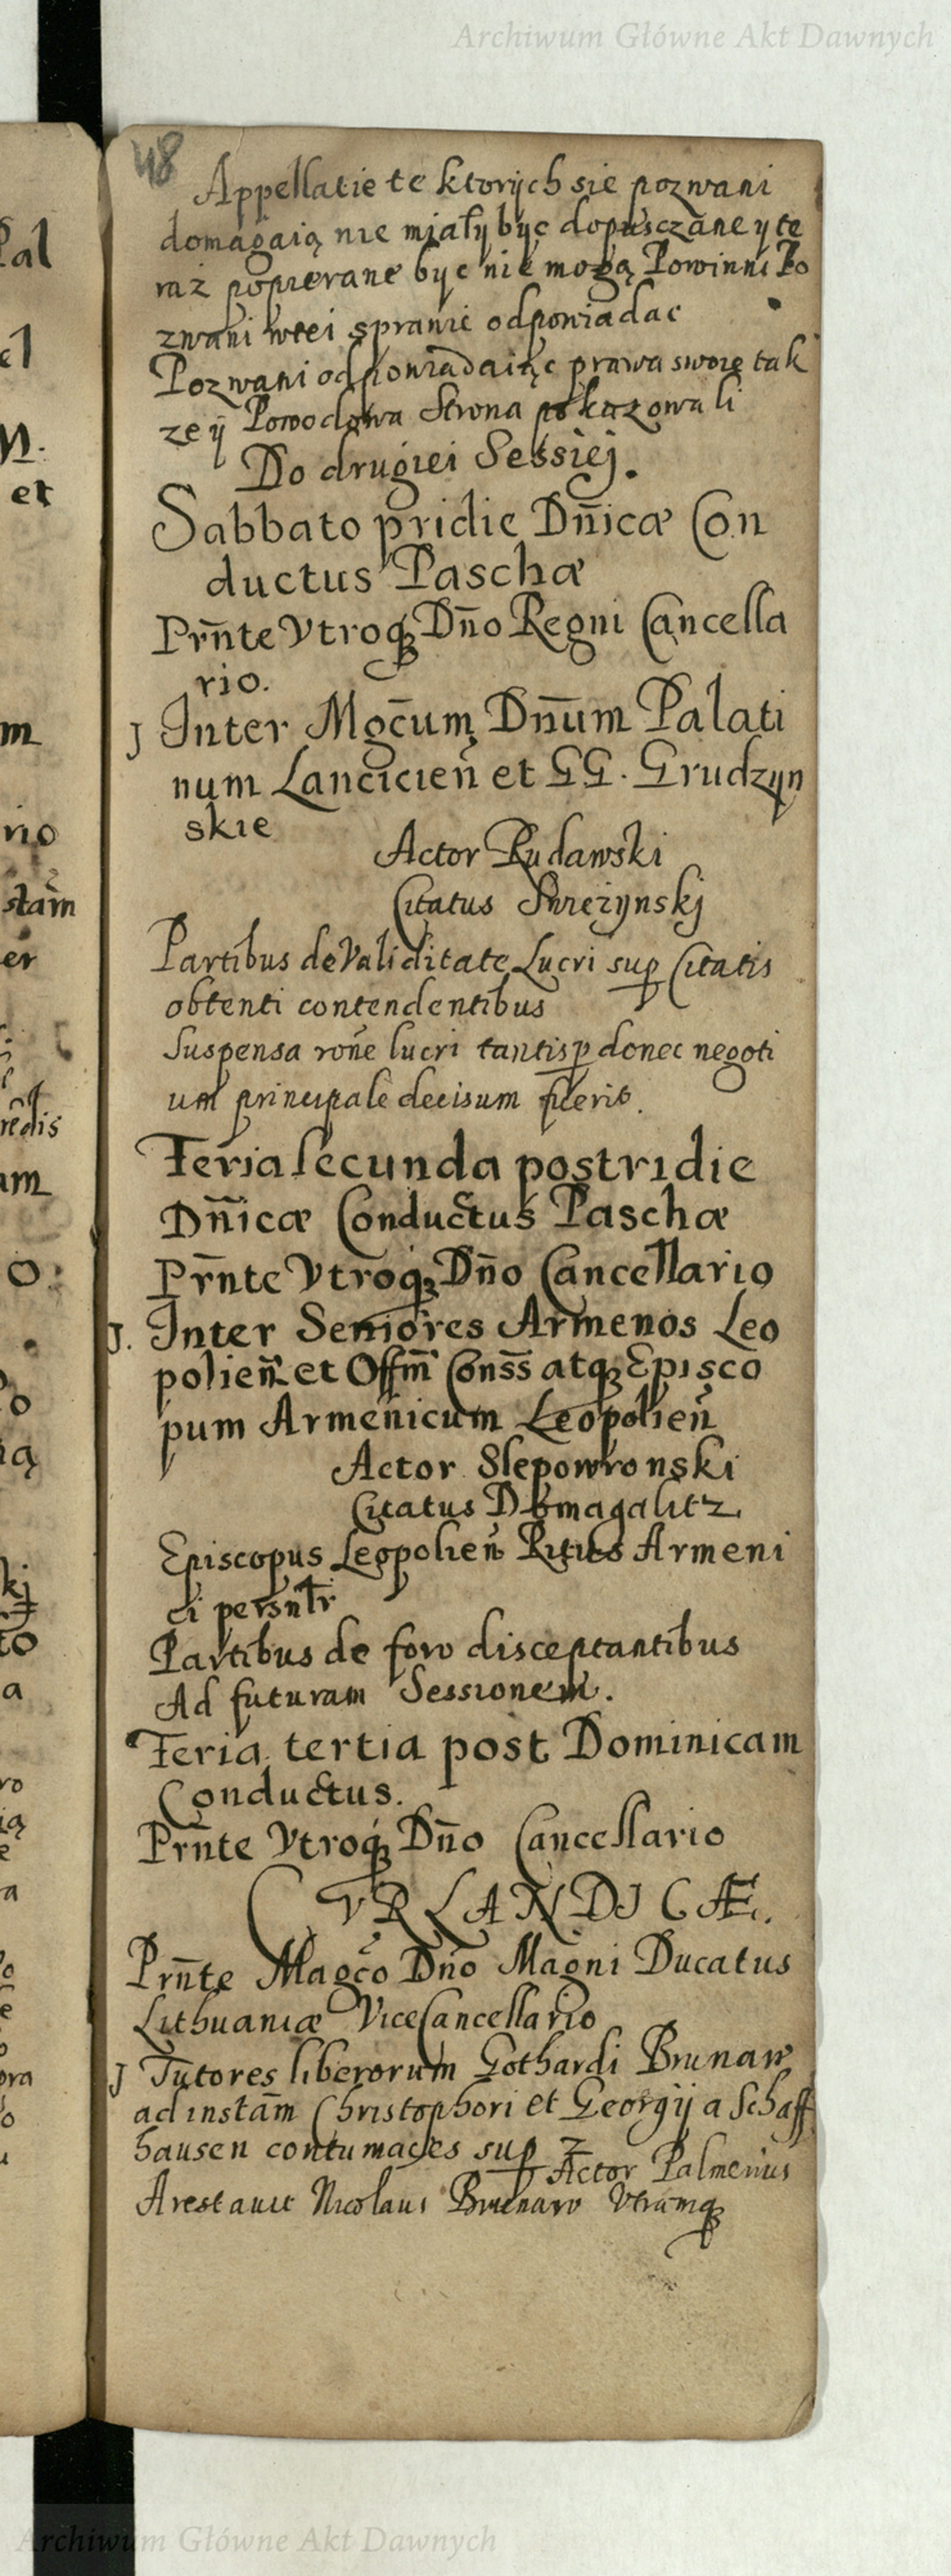 Archiwum Główne Akt Dawnych
48
Appellatie te ktorych sie pozwani
domagaią nie miały byc dopusczane y te
raz popierane byc nie mogą Powinni Po
zwani wtei sprawie odpowiadac
Pozwani odpowiadaiąc prawa swoie tak
ze ÿ Powodowa Strona pokazowali
Do drugiei Sessiej.
Sabbato pridie Dn̄icæ Con
ductus Paschæ
Prn̄te Vtroqꝫ Dn̄o Regni Cancella
rio.
J Inter Mgc̄um Dn̄um Palati
num Lancicien̄ et GG. Grudzyn
skie
Actor Rudawski
Citatus Swieżynskj
Partibus de Validitate Lucri sup Citatis
obtenti contendentibus
Suspensa rōne lucri tantisp donec negoti
um principale decisum fuerit.
Feria secunda postridie
Dn̄icæ Conductus Paschæ
Prn̄te Vtroqꝫ Dn̄o Cancellario
J. Inter Seniores Armenos Leo
polien̄ et Offm̄ Conss̄ atqꝫ Episco
pum Armenicum Leopolien̄
Actor Slepowronski
Citatus Domagalitz
Episcopus Leopolien̄ Ritus Armeni
ci persnlr̄
Partibus de foro disceptantibus
Ad futuram Sessionem.
Feria tertia post Dominicam
Conductus.
Prn̄te Vtroqꝫ Dn̄o Cancellario
CVRLANDICÆ.
Prn̄te Magc̄o Dn̄o Magni Ducatus
Lithuaniæ ViceCancellario
J Tutores liberorum Gothardi Brunaw
ad instām Christophori et Georgÿ a Schaff
hausen contumaces sup z
Actor Palmerius
Arestauit Nicolaus Brunaw Vtramqꝫ
Archiwum Główne Akt Dawnych